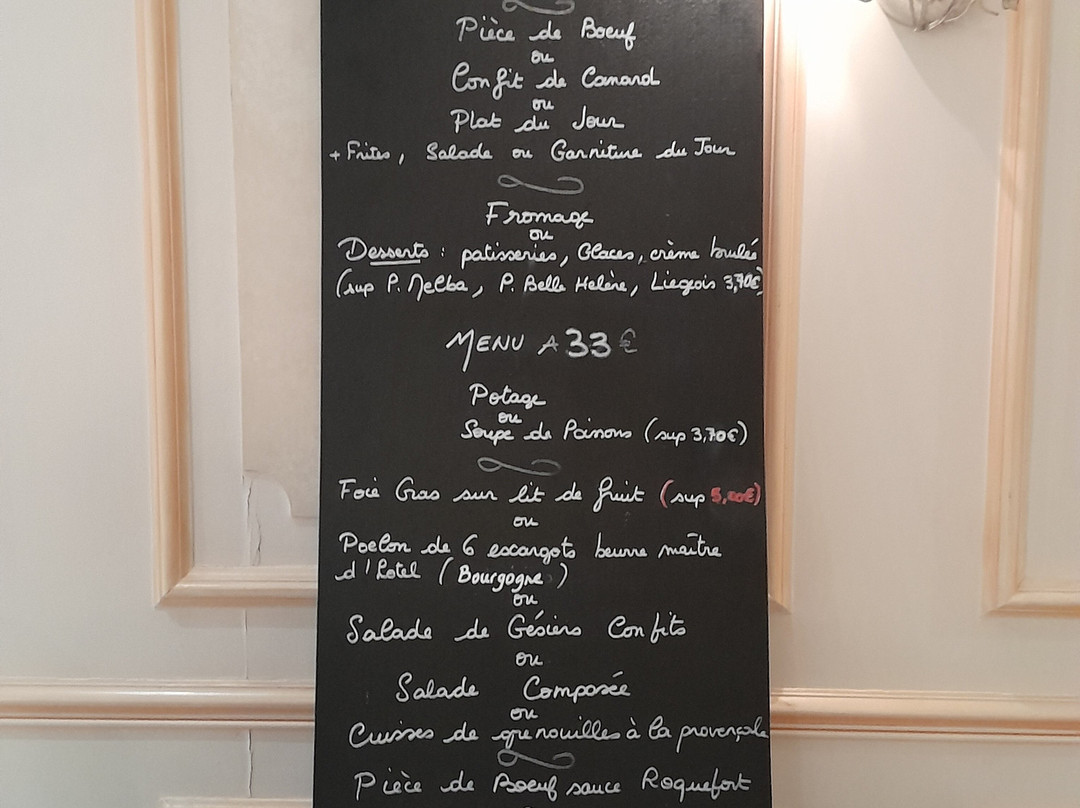 Pièce de Boeuf
ou
Confit de Canard
ou
Plat du Jour
+ Frites, Salade ou Garniture du Jour
Fromage
ou
Desserts : patisseries, Glaces, crème brulée
(sup P. Melba, P. Belle Helène, Liegeois 3,70€)
MENU A 33 €
Potage
ou
Soupe de Poissons (sup 3,70€)
Foie Gras sur lit de fruit (sup 5,00€)
ou
Poelon de 6 escargots beurre maître
d'hotel (Bourgogne)
ou
Salade de Gésiers Confits
ou
Salade Composée
ou
Cuisses de grenouilles à la provençale
Pièce de Boeuf sauce Roquefort